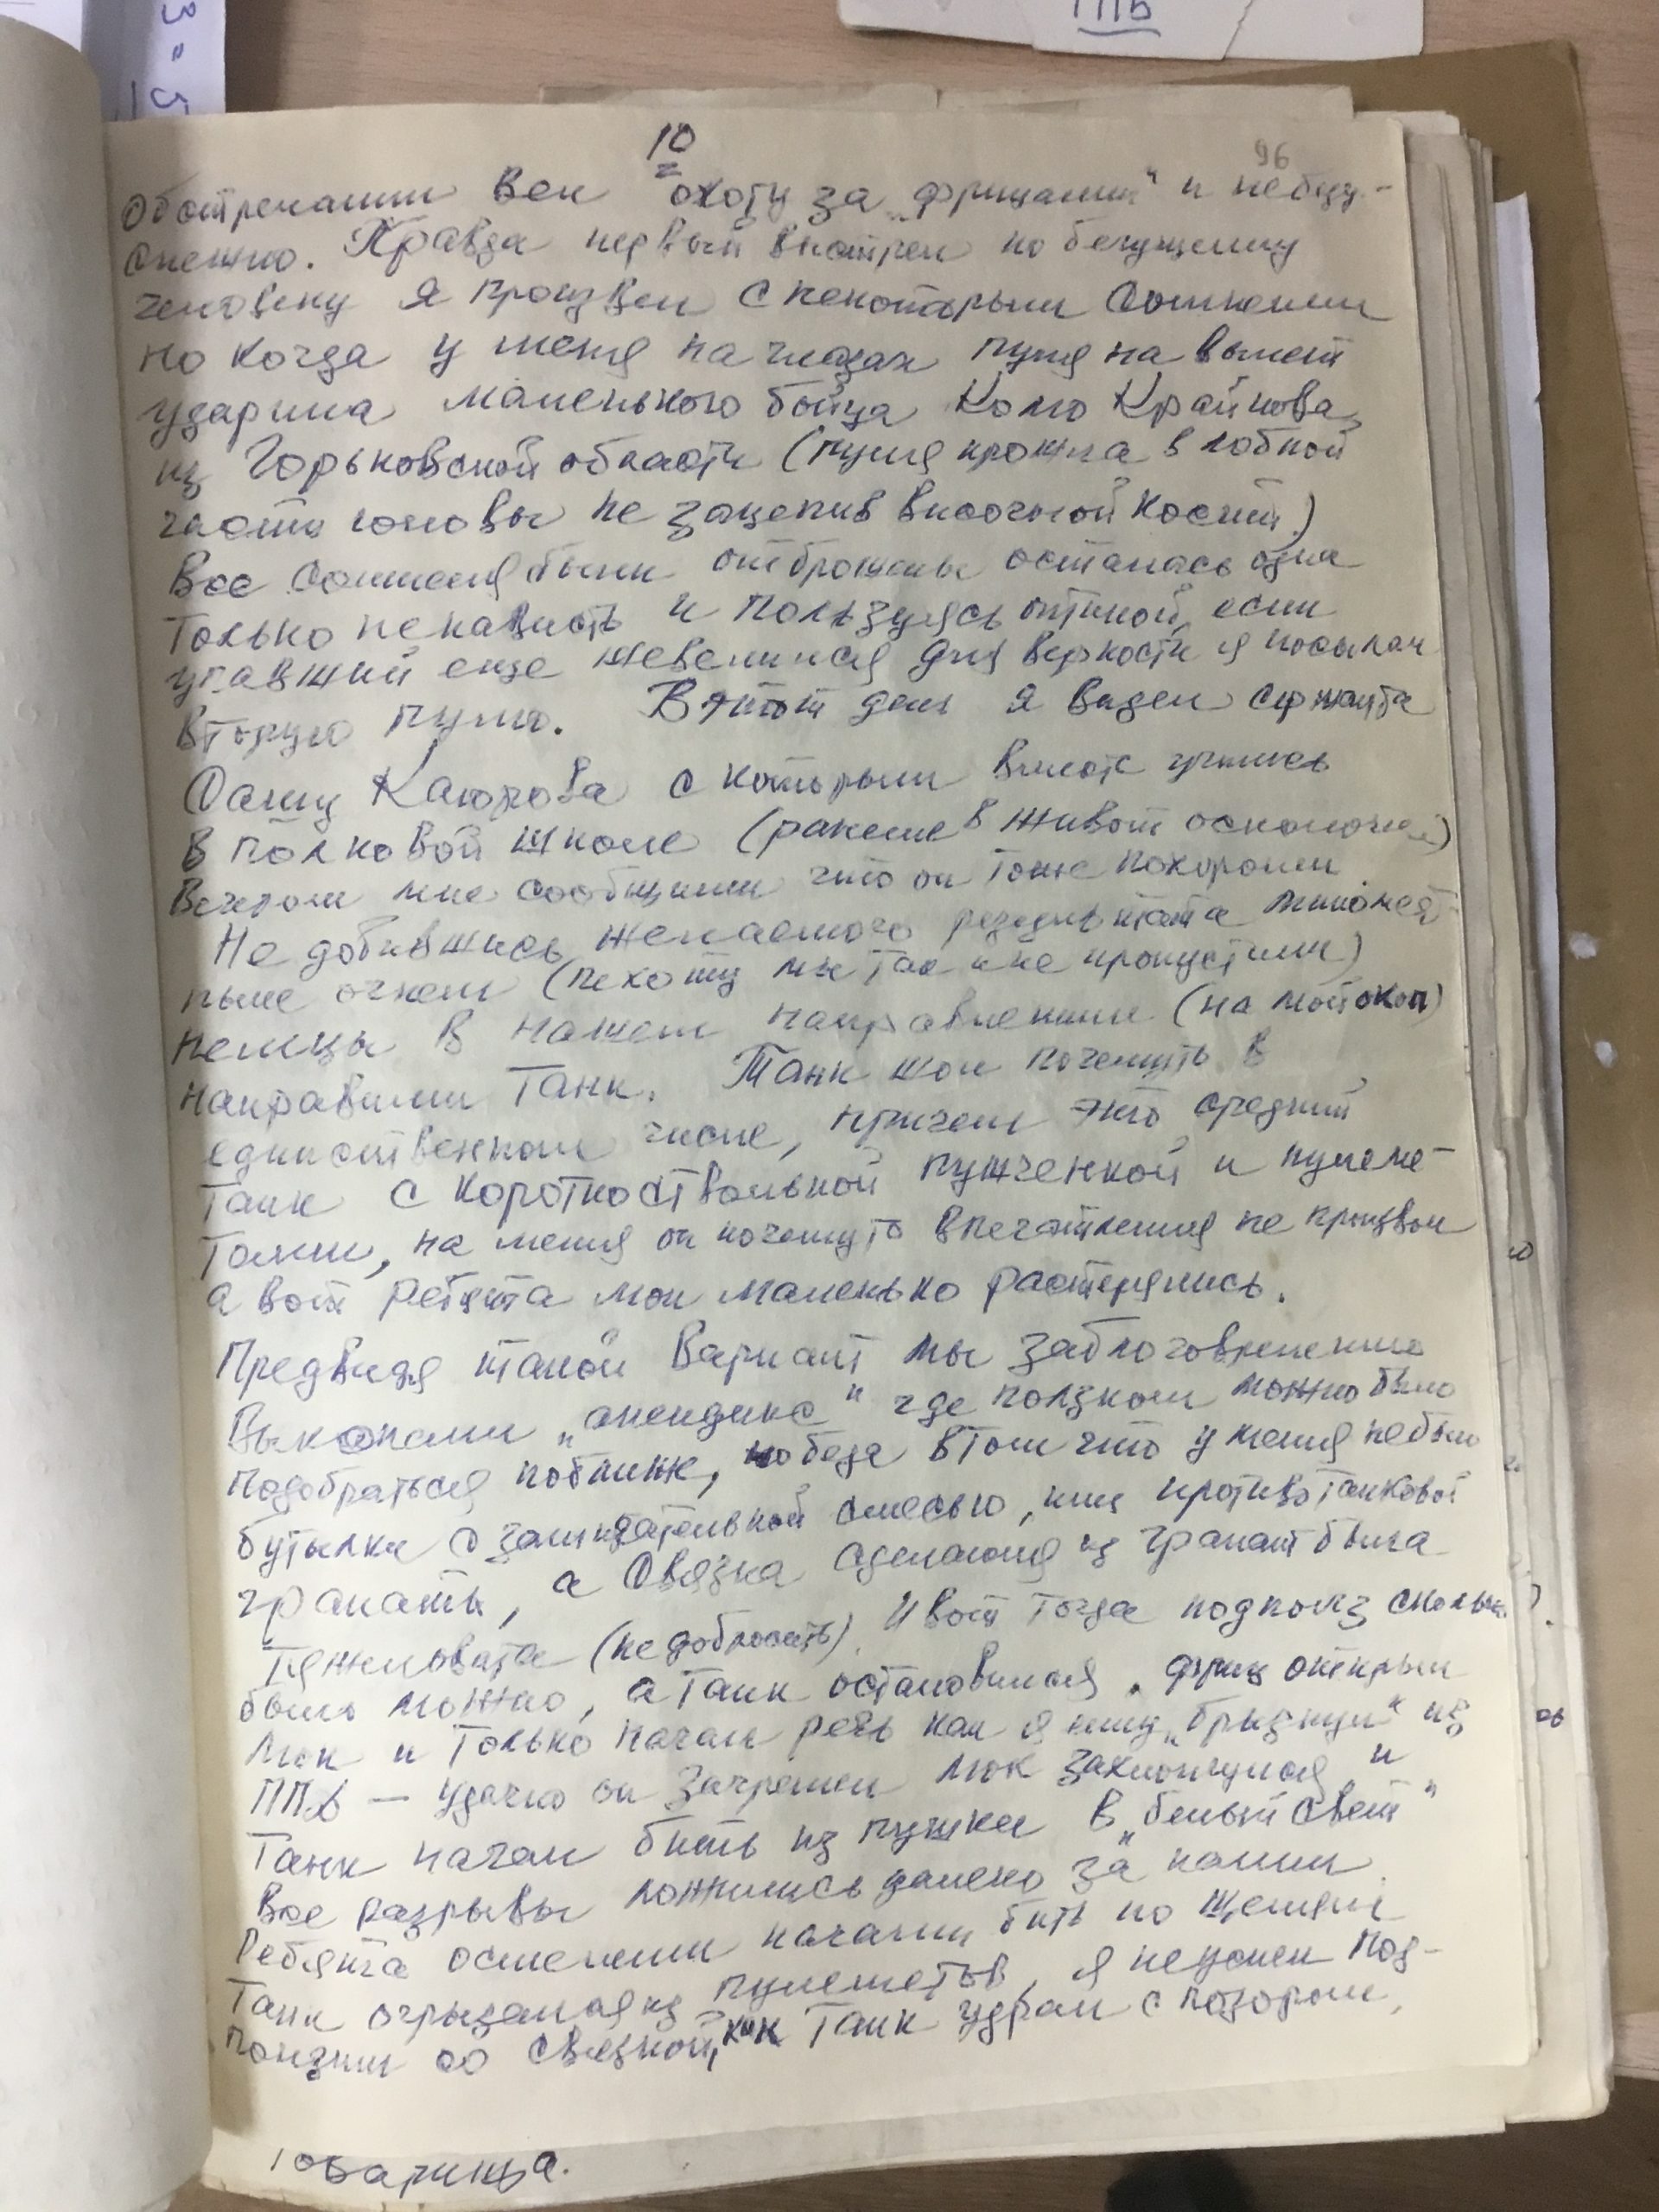 3 = 5
ГПБ
10
96
Обстреливали вел "охоту за „фрицами" и небезу-
спешно. Правда первый выстрел по бегущему
человеку я произвел с некоторым сомнением
но когда у меня на глазах пуля на вылет
ударила маленького бойца Колю Крайнова,
из Горьковской области (пуля прошла в лобной
части головы не зацепив височной кости.)
Все сомнения были отброшены осталась одна
только ненависть и пользуясь оптикой, если
упавший еще шевелился для верности я посылал
вторую пулю. В этот день я видел сержанта
Сашу Каюрова с которым вместе учились
в полковой школе (ранение в живот осколочное)
Вечером мне сообщили что он тоже похоронен
Не добившись желаемого результата миномет-
ным огнем (пехоту мы так и не пропустили)
немцы в нашем направлении (на мой окоп)
направили танк. Танк шол почемуто в
единственном числе, причем это средний
танк с короткоствольной пушченкой и пулеме-
тами, на меня он почемуто впечатления не произвол
а вот ребята мои маленько растерялись.
Предвидя такой вариант мы заблоговременно
выкопали „апендикс" где ползком можно было
подобраться поближе, но беда в том что у меня небыло
бутылки с зажигательной смесью, или противотанковой
гранаты, а связка сделанная из гранат была
тяжеловата (не добросить). И вот тогда подполз сколько
было можно, а танк остановился, фриц открыл
люк и только начал речь как я ему „брызнул" из
ППД — удачно он загремел люк захлопнулся и
танк начал бить из пушки в „белый свет"
Все разрывы ложились далеко за нами.
Ребята осмелели начали бить по щелям
танк огрызался из пулеметов, я не успел под-
ползти со связкой, как танк удрал с позором,
товарища.